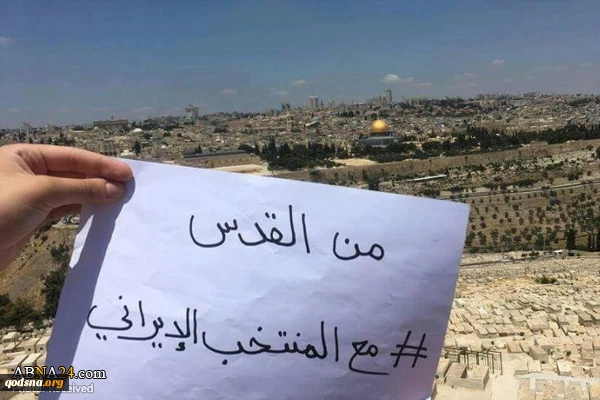 من القدس
#مع المنتخب الإيراني
ABNA24.com
qodsna.org
received